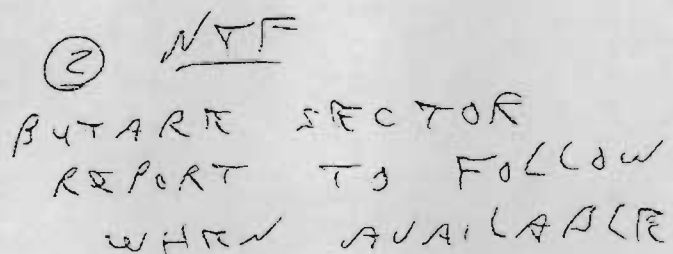 ② NTF
BUTARE SECTOR
REPORT TO FOLLOW
WHEN AVAILABLE